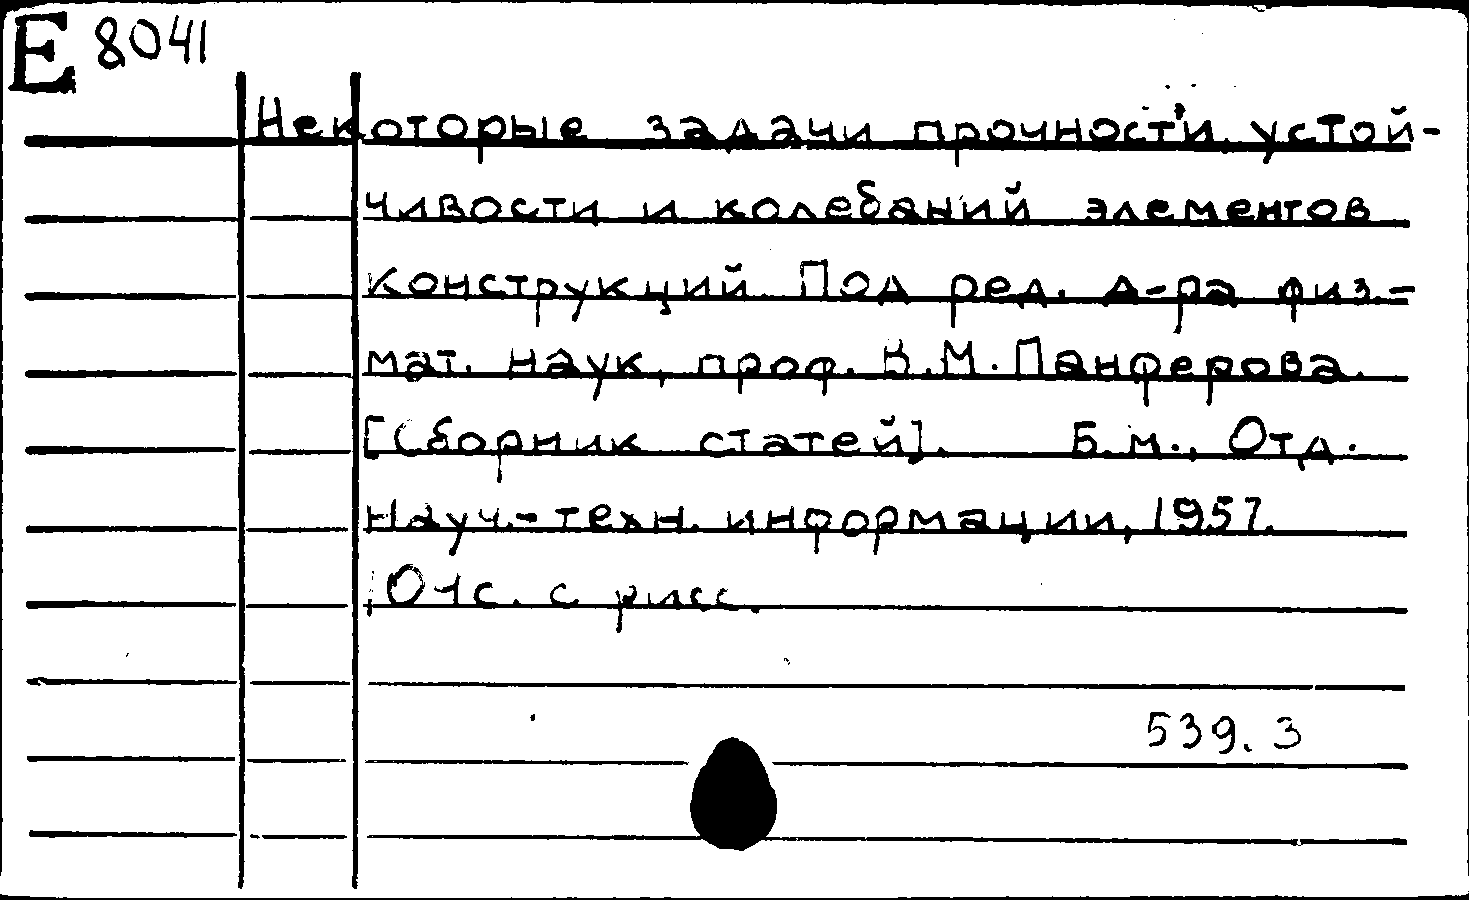 Е 8041
Некоторые задачи прочности, устой-
чивости и колебаний элементов
конструкций. Под ред. д-ра физ.-
мат. наук, проф. В.М. Панферова.
[Сборник статей]. Б.м., Отд.
науч.-техн. информации, 1957.
с. с рисс.
539.3